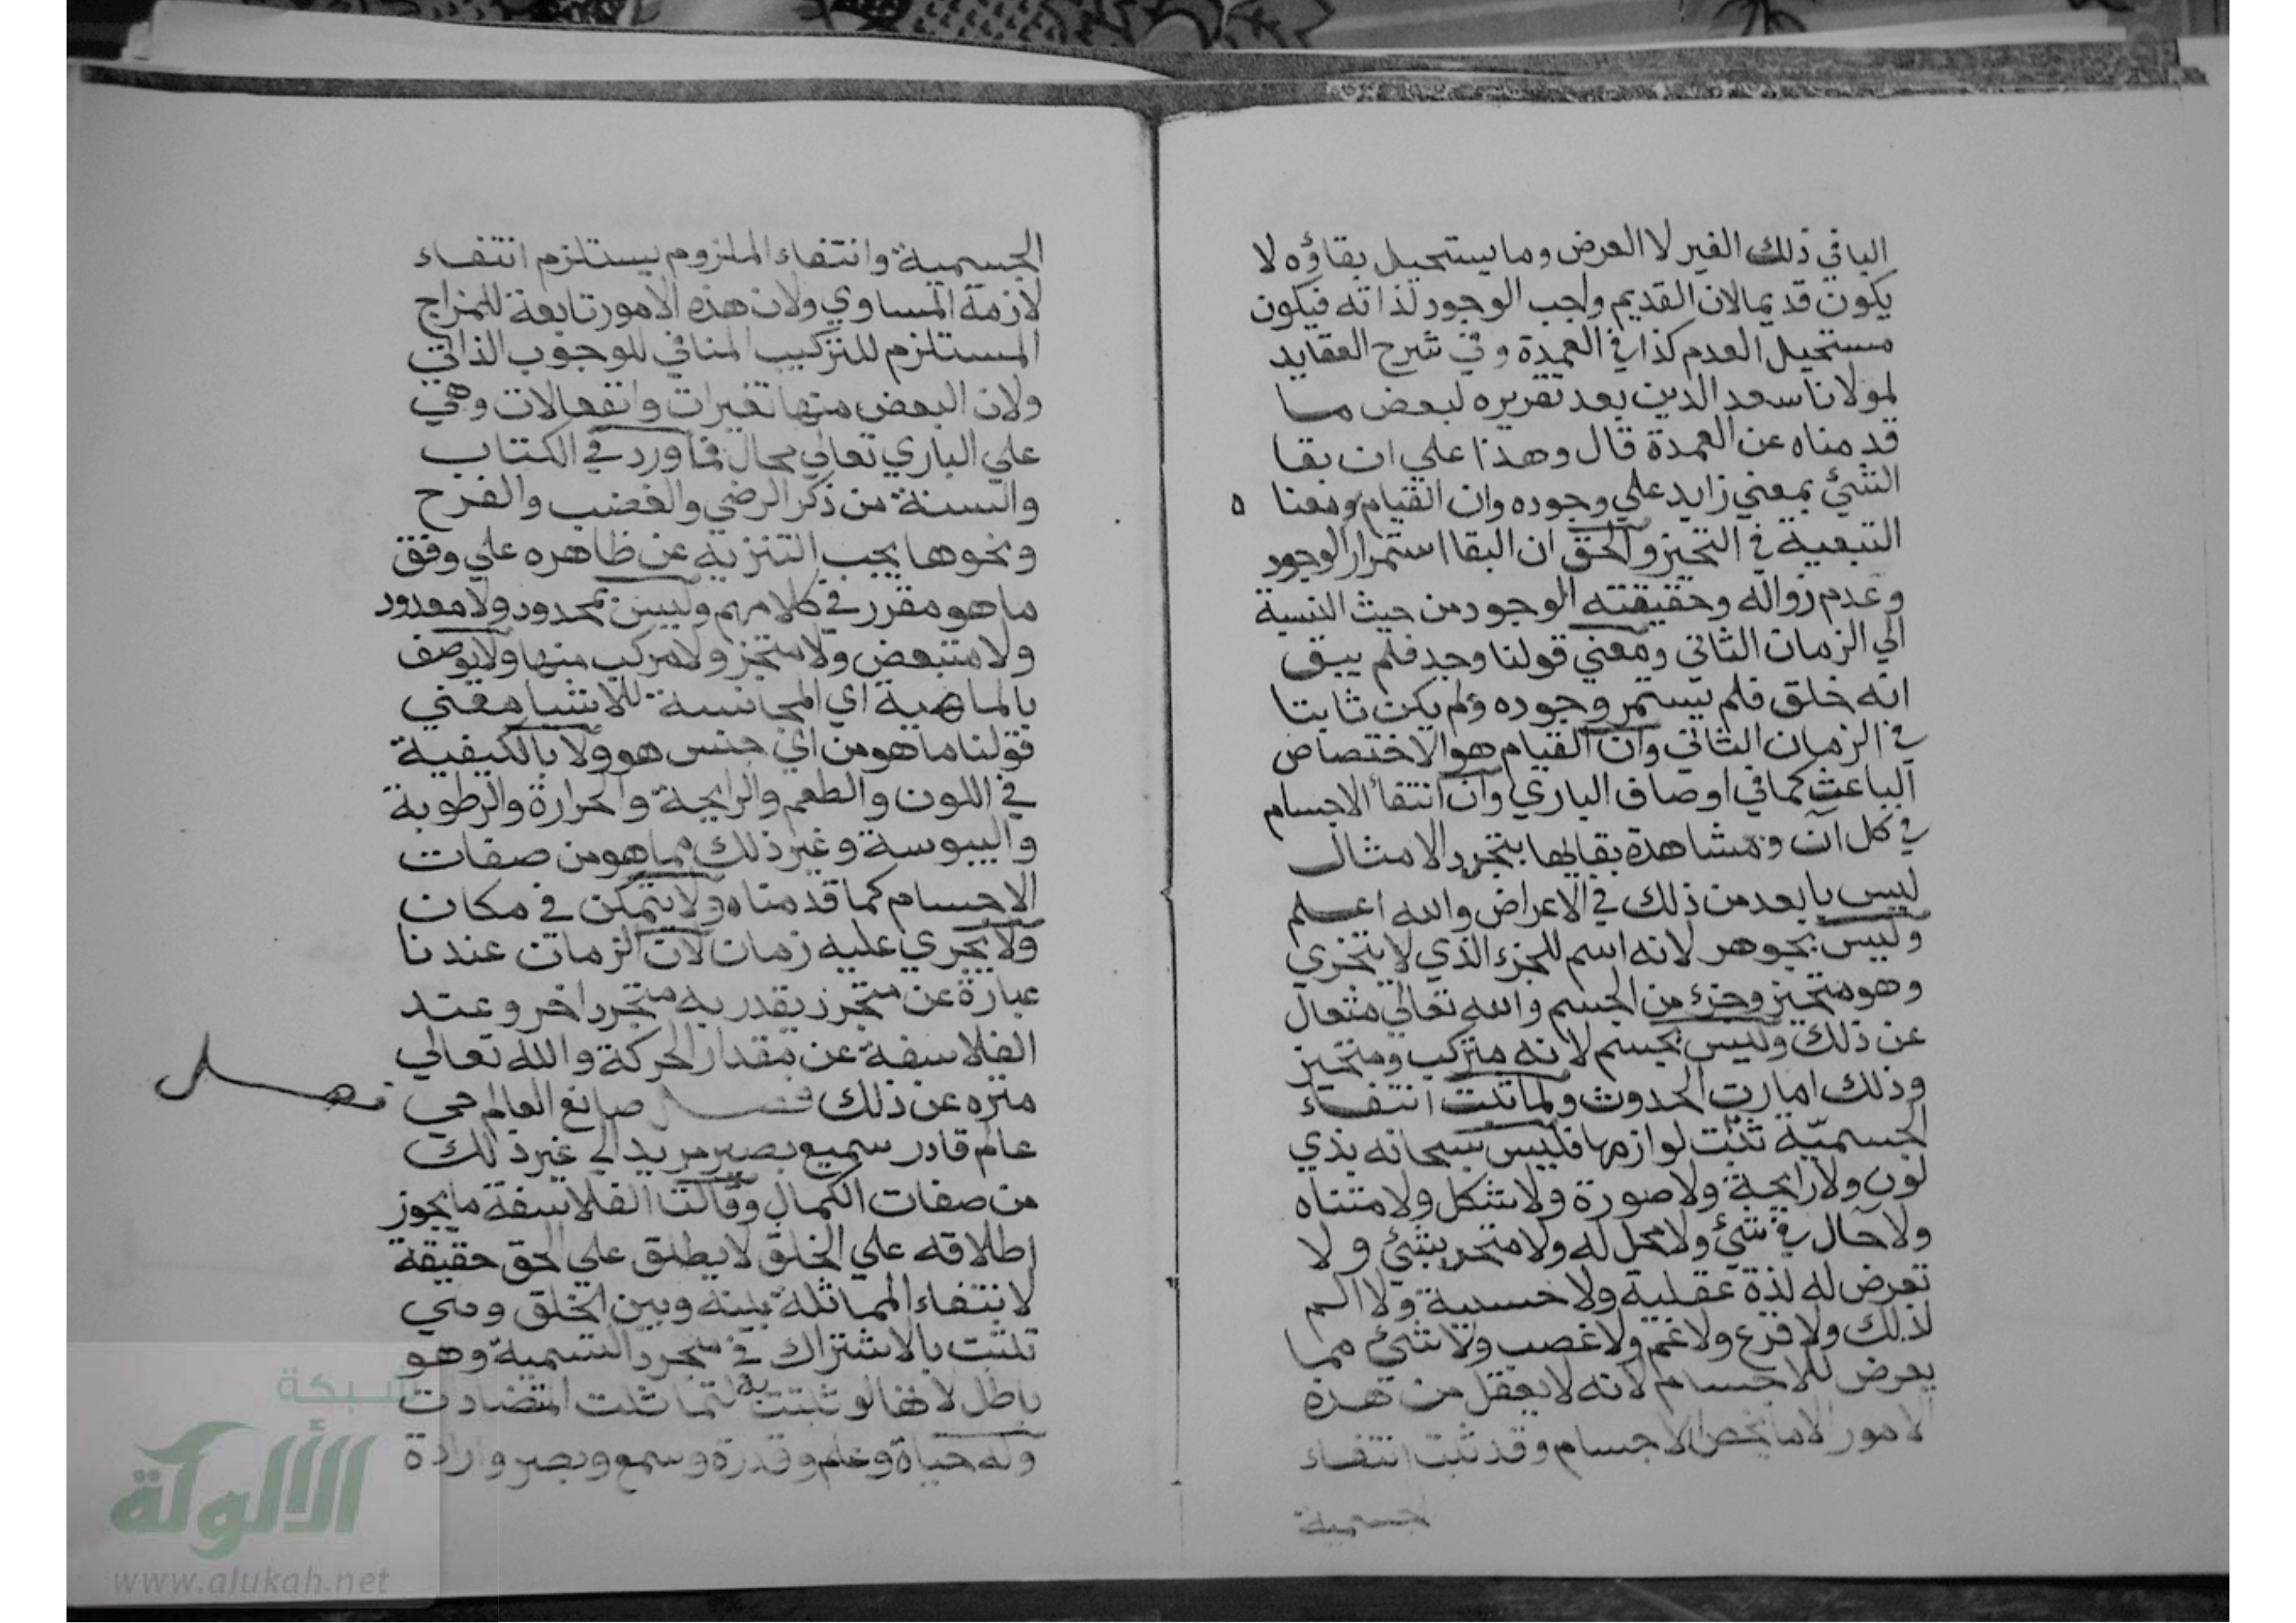 الباقي ذلك الغير لا العرض وما يستحيل بقاؤه لا
يكون قديما لان القديم واجب الوجود لذاته فيكون
مستحيل العدم كذا في العمدة وفي شرح العقايد
لمولانا سعد الدين بعد تقريره لبعض ما
قدمناه عن العمدة قال وهذا علي ان بقا
الشئ بمعني زايد علي وجوده وان القيام ومعنا ه
التبعية في التحيز والحق ان البقا استمرار الوجود
وعدم زواله وحقيقته الوجود من حيث النسبة
الي الزمان الثاني ومعني قولنا وجد فلم يبق
انه خلق فلم يستمر وجوده ولم يكن ثابتا
في الزمان الثاني وان القيام هو الاختصاص
الباعث كما في اوصاف الباري وان انتفا الاجسام
في كل آن ومشاهدة بقايها بتجدد الامثال
ليس بابعد من ذلك في الاعراض والله اعلم
وليس بجوهر لانه اسم للجزء الذي لا يتجزي
وهو متحيز وجزء من الجسم والله تعالي متعال
عن ذلك وليس بجسم لانه متركب ومتحيز
وذلك امارت الحدوث ولما ثبت انتفاء
الجسميّة ثبت لوازمها فليس سبحانه بذي
لون ولا رايحة ولا صورة ولا شكل ولا متناه
ولا حال في شئ ولا محل له ولا متحد بشئ ولا
تعرض له لذة عقلية ولا حسية ولا الم
لذلك ولا فزع ولا غم ولا غضب ولا شئ مما
يعرض للاجسام لانه لا يعقل من هذه
الامور الا ما يخص الاجسام وقد ثبت انتفاء
الجسمية
الجسمية وانتفاء الملزوم يستلزم انتفاء
لازمة المساوي ولان هذه الامور تابعة للمزاج
المستلزم للتركيب المنافي للوجوب الذاتي
ولان البعض منها تغيرات وانفعالات وهي
علي الباري تعالي محال فما ورد في الكتاب
والسنة من ذكر الرضي والغضب والفرح
ونحوها يجب التنزيه عن ظاهره علي وفق
ما هو مقرر في كلامهم وليس بمحدود ولا معدود
ولا متبعض ولا متحيز ولا مركب منها ولا يوصف
بالماهية اي المجانسة للاشيا معني
قولنا ما هو من اي جنس هو ولا بالكيفية
في اللون والطعم والرايحة والحرارة والرطوبة
واليبوسة وغير ذلك مما هو من صفات
الاجسام كما قدمناه ولا يتمكن في مكان
ولا يجري عليه زمان لان الزمان عندنا
عبارة عن متجدد يقدر به متجدد اخر وعند
الفلاسفة عن مقدار الحركة والله تعالي
منزه عن ذلك فصل صانع العالم حي
فصل
عالم قادر سميع بصير مريد الي غير ذلك
من صفات الكمال وقالت الفلاسفة ما يجوز
اطلاقه علي الخلق لا يطلق علي الحق حقيقة
لانتفاء المماثلة بينه وبين الخلق ومتي
تثبت بالاشتراك في مجرد التسمية وهو
باطل لانها لو ثبتت به لتماثلت المتضادت
وله حياة وعلم وقدرة وسمع وبصر وارادة
شبكة
الألوكة
www.alukah.net